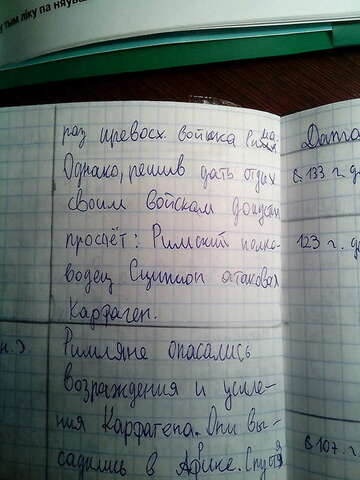 тым ліку па няўва
раз превосх. войска Рима.
Однако, решив дать отдых
своим войскам допустил
просчёт: Римский полко-
водец Сципион атаковал
Карфаген.
Римляне опасались
возраждения и усиле-
ния Карфагена. Они вы-
садились в Африке. Спустя
н.э
Дата
в 133 г. д
123 г. д
в 107 г.